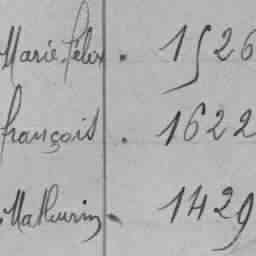 Marie félix . 1526
françois . 1622
Mathurin 1429